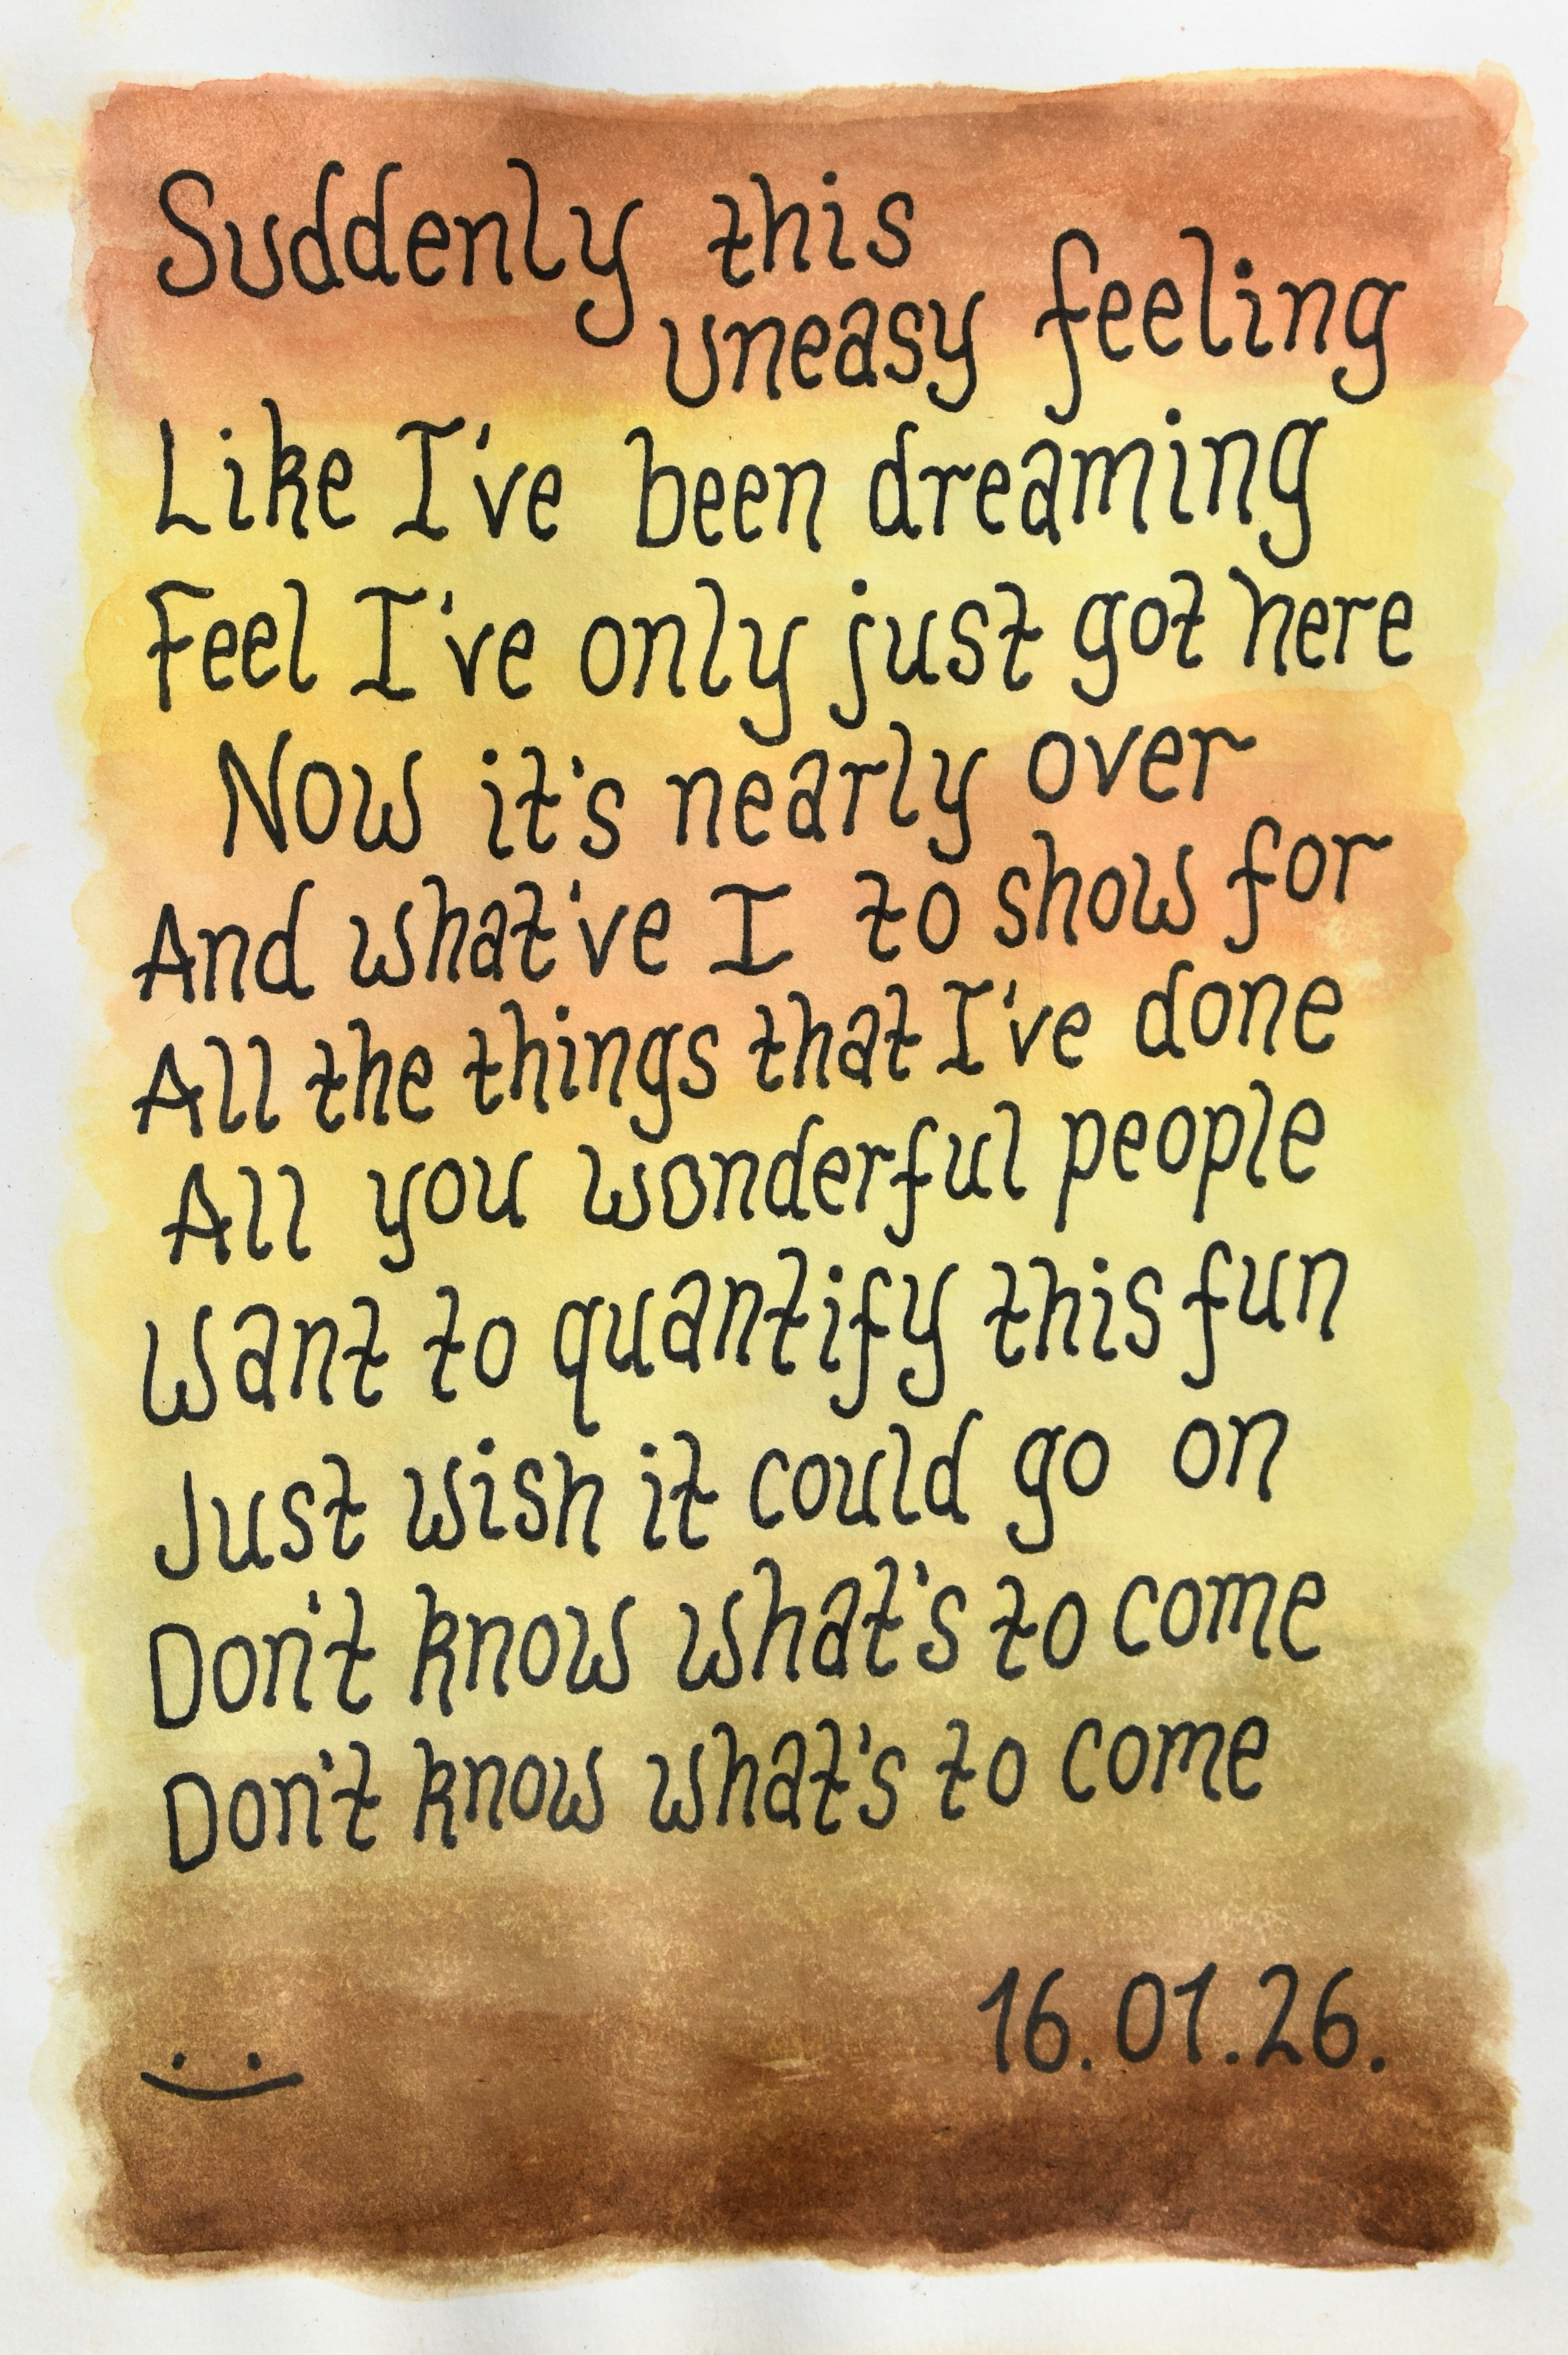 Suddenly this
uneasy feeling
Like I've been dreaming
Feel I've only just got here
Now it's nearly over
And what've I to show for
All the things that I've done
All you wonderful people
Want to quantify this fun
Just wish it could go on
Don't know what's to come
Don't know what's to come
16.01.26.